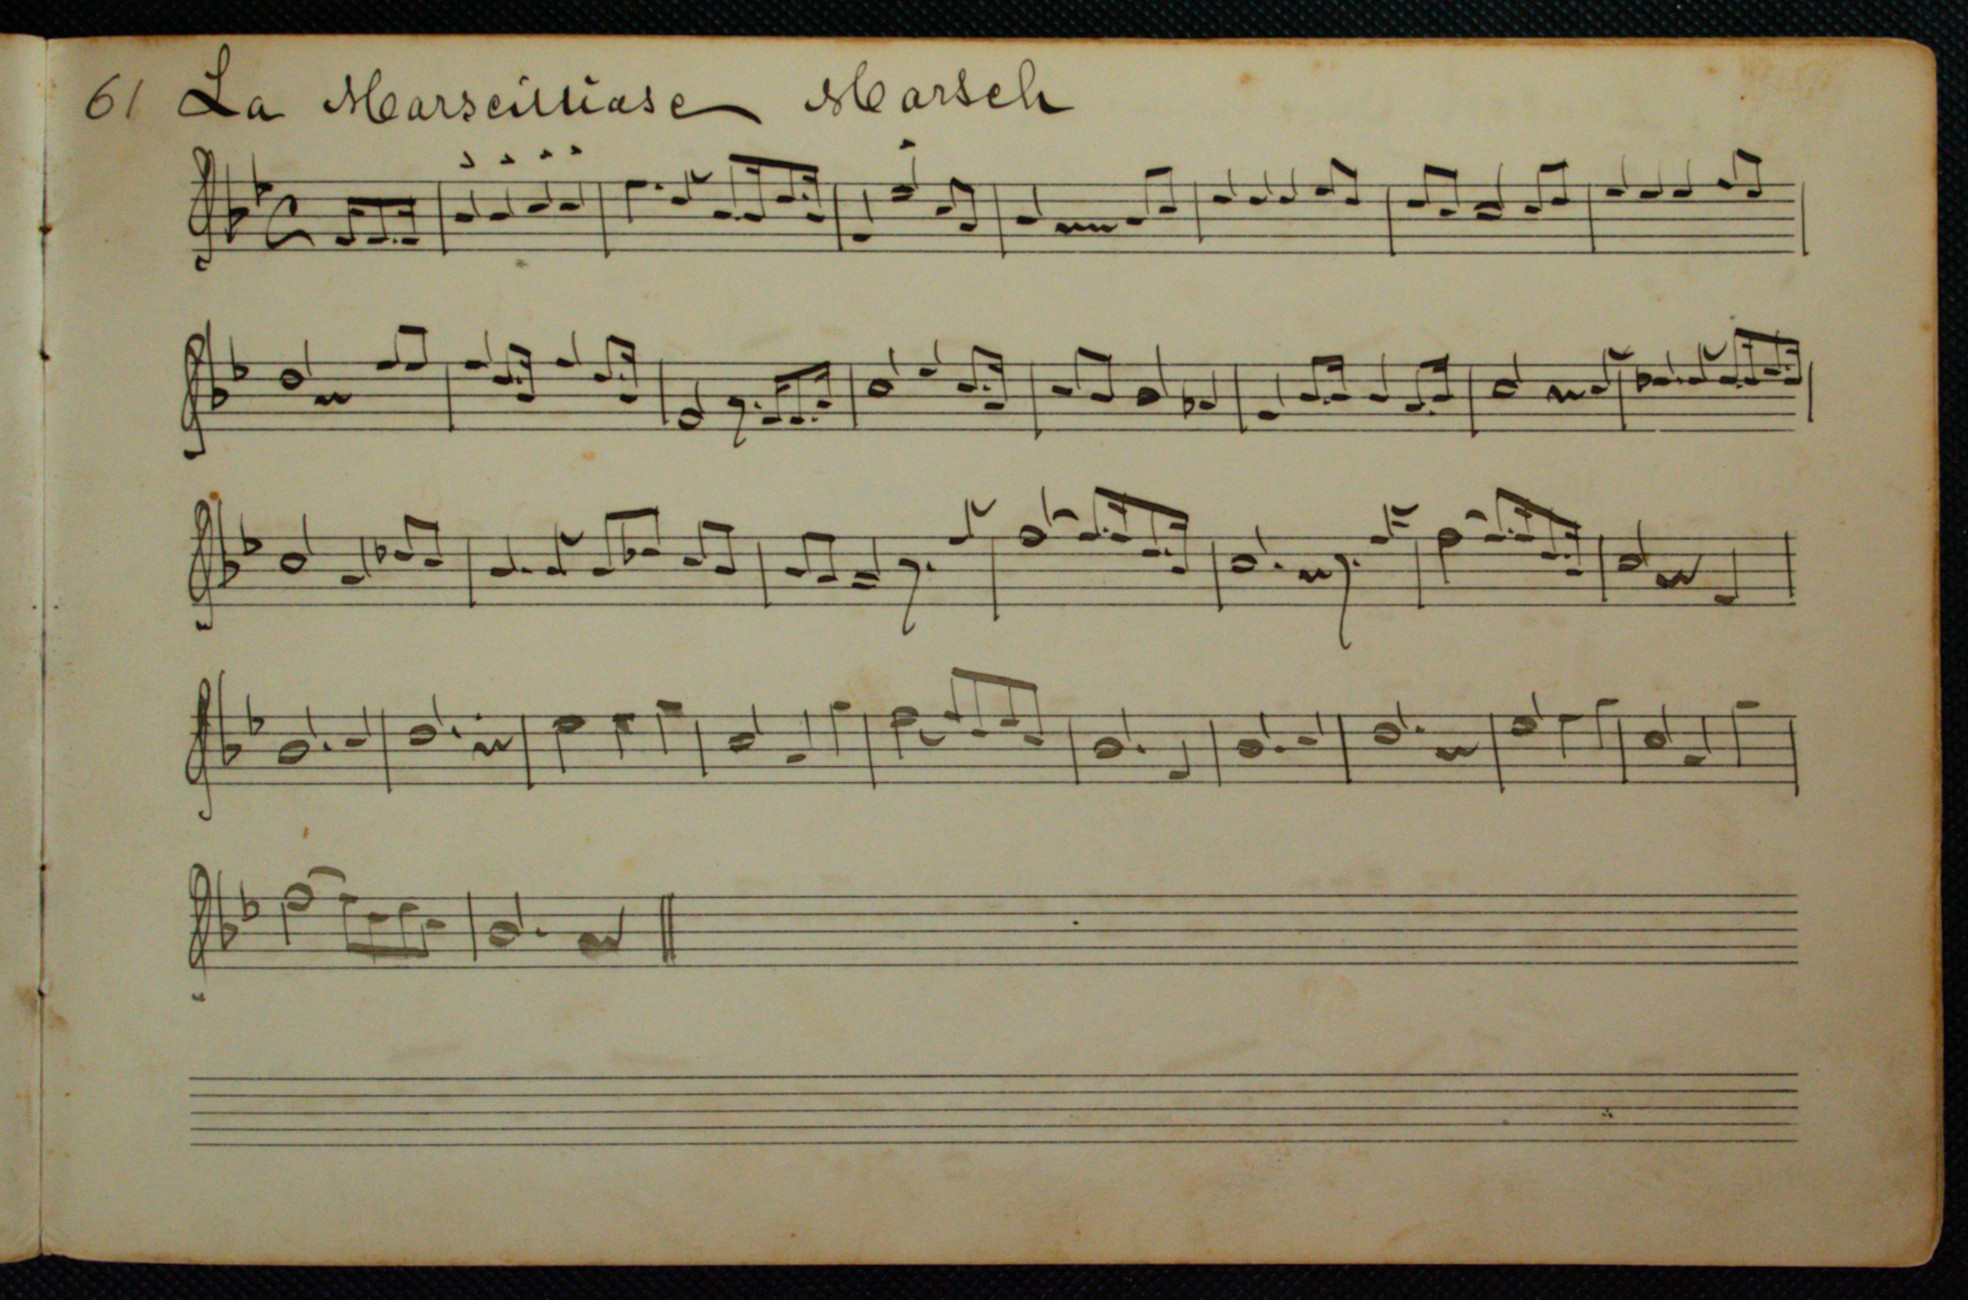 61 La Marseilliase Marsch